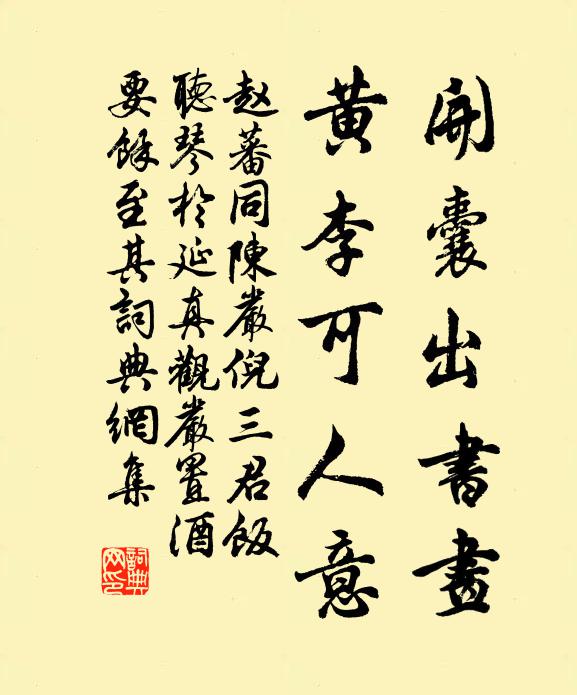 開囊出書畫
黃李可人意
赵蕃同陳嚴倪三君飯
聽琴於延真觀嚴置酒
要餘至其詞典網集
詞典网印